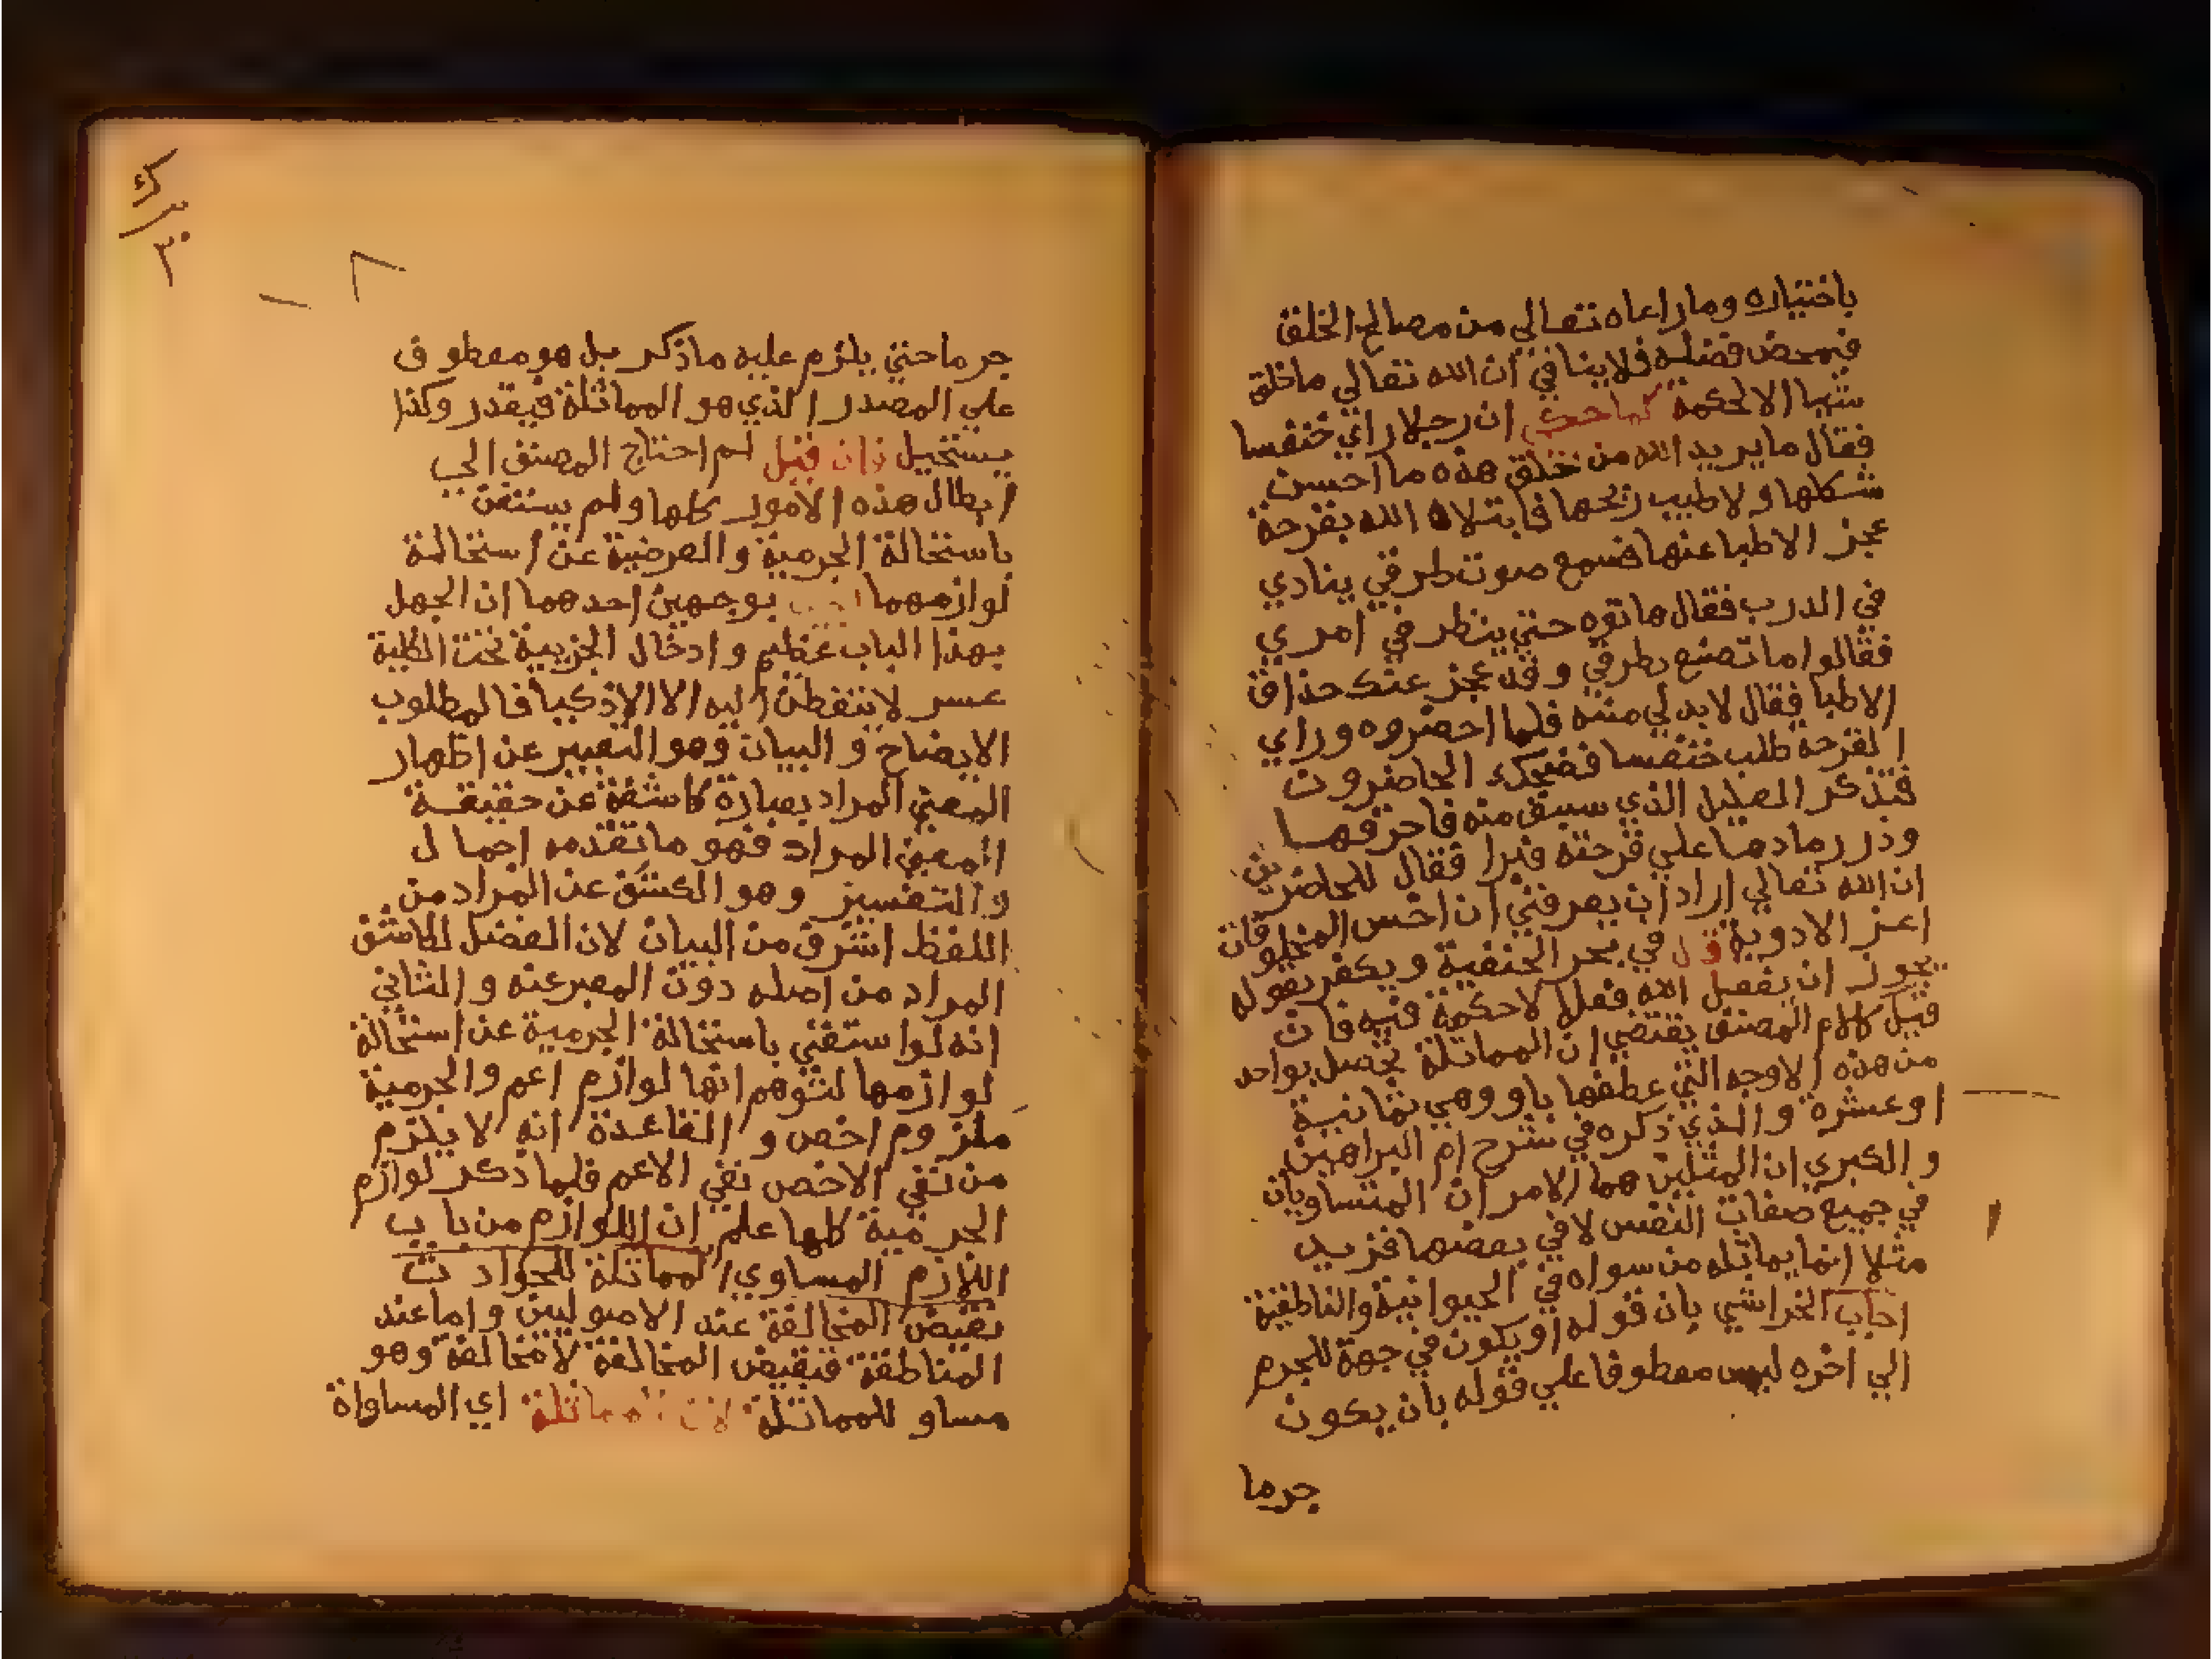 باختياره وما راعاه تعالي من مصالح الخلق
فمحض فضله فلا ينافي ان الله تعالي ما خلق
شيا الا لحكمة كما حكي ان رجلا راي خنفسا
فقال ما يريد الله من خلق هذه ما احسن
شكلها ولا طيب ريحها فابتلاه الله بقرحة
عجز الاطبا عنها فسمع صوت طرقي ينادي
في الدرب فقال هاتوه حتي ينظر في امري
فقالوا ما تصنع بطرقي وقد عجز عنك حذاق
الاطبا فقال لابد لي منه فلما احضروه وراي
القرحة طلب خنفسا فضحك الحاضرون
فتذكر العليل الذي سبق منه فاحرقها
وذر رمادها علي قرحته فبرا فقال للحاضرين
ان الله تعالي اراد ان يعرفني ان اخس المخلوقات
اعز الادوية قال في بحر الحنفية ويكفر بقوله
يجوز ان يفعل الله فعلا لا حكمة فيه فان
قيل كلام المصنف يقتضي ان المماثلة تحصل بواحد
من هذه الاوجه التي عطفها باو وهي ثمانية
او عشرة والذي ذكره في شرح ام البراهين
والكبري ان المثلين هما الامران المتساويان
في جميع صفات النفس لا في بعضها فزيد
مثلا انما يماثله من سواه في الحيوانية والناطقية
اجاب الخراشي بان قوله او يكون في جهة للجرم
الي اخره ليس معطوفا علي قوله بان يكون
جرما
جرما حتي يلزم عليه ما ذكر بل هو معطوف
علي المصدر الذي هو المماثلة فيقدر وكذا
يستحيل فان قيل لم احتاج المصنف الي
ابطال هذه الامور كلها ولم يستغن
باستحالة الجرمية والعرضية عن استحالة
لوازمهما بوجهين احدهما ان الجهل
بهذا الباب عظيم وادخال الجزيية تحت الكلية
عسر لا يتفطن اليه الا الاذكيا فالمطلوب
الايضاح والبيان وهو التعبير عن اظهار
المعني المراد بعبارة كاشفة عن حقيقة
المعني المراد فهو ما تقدم اجمال
والتفسير وهو الكشف عن المراد من
اللفظ اشرف من البيان لان الفضل للكاشف
المراد من اصله دون المعبر عنه والثاني
انه لو استغني باستحالة الجرمية عن استحالة
لوازمها لتوهم انها لوازم اعم والجرمية
ملزوم اخص والقاعدة انه لا يلزم
من نفي الاخص نفي الاعم فلما ذكر لوازم
الجرمية كلها علم ان اللوازم من باب
اللازم المساوي المماثلة للحوادث
نقيض المخالفة عند الاصوليين واما عند
المناطقة فنقيض المخالفة لا مخالفة وهو
مساو للمماثلة لان المماثلة اي المساواة